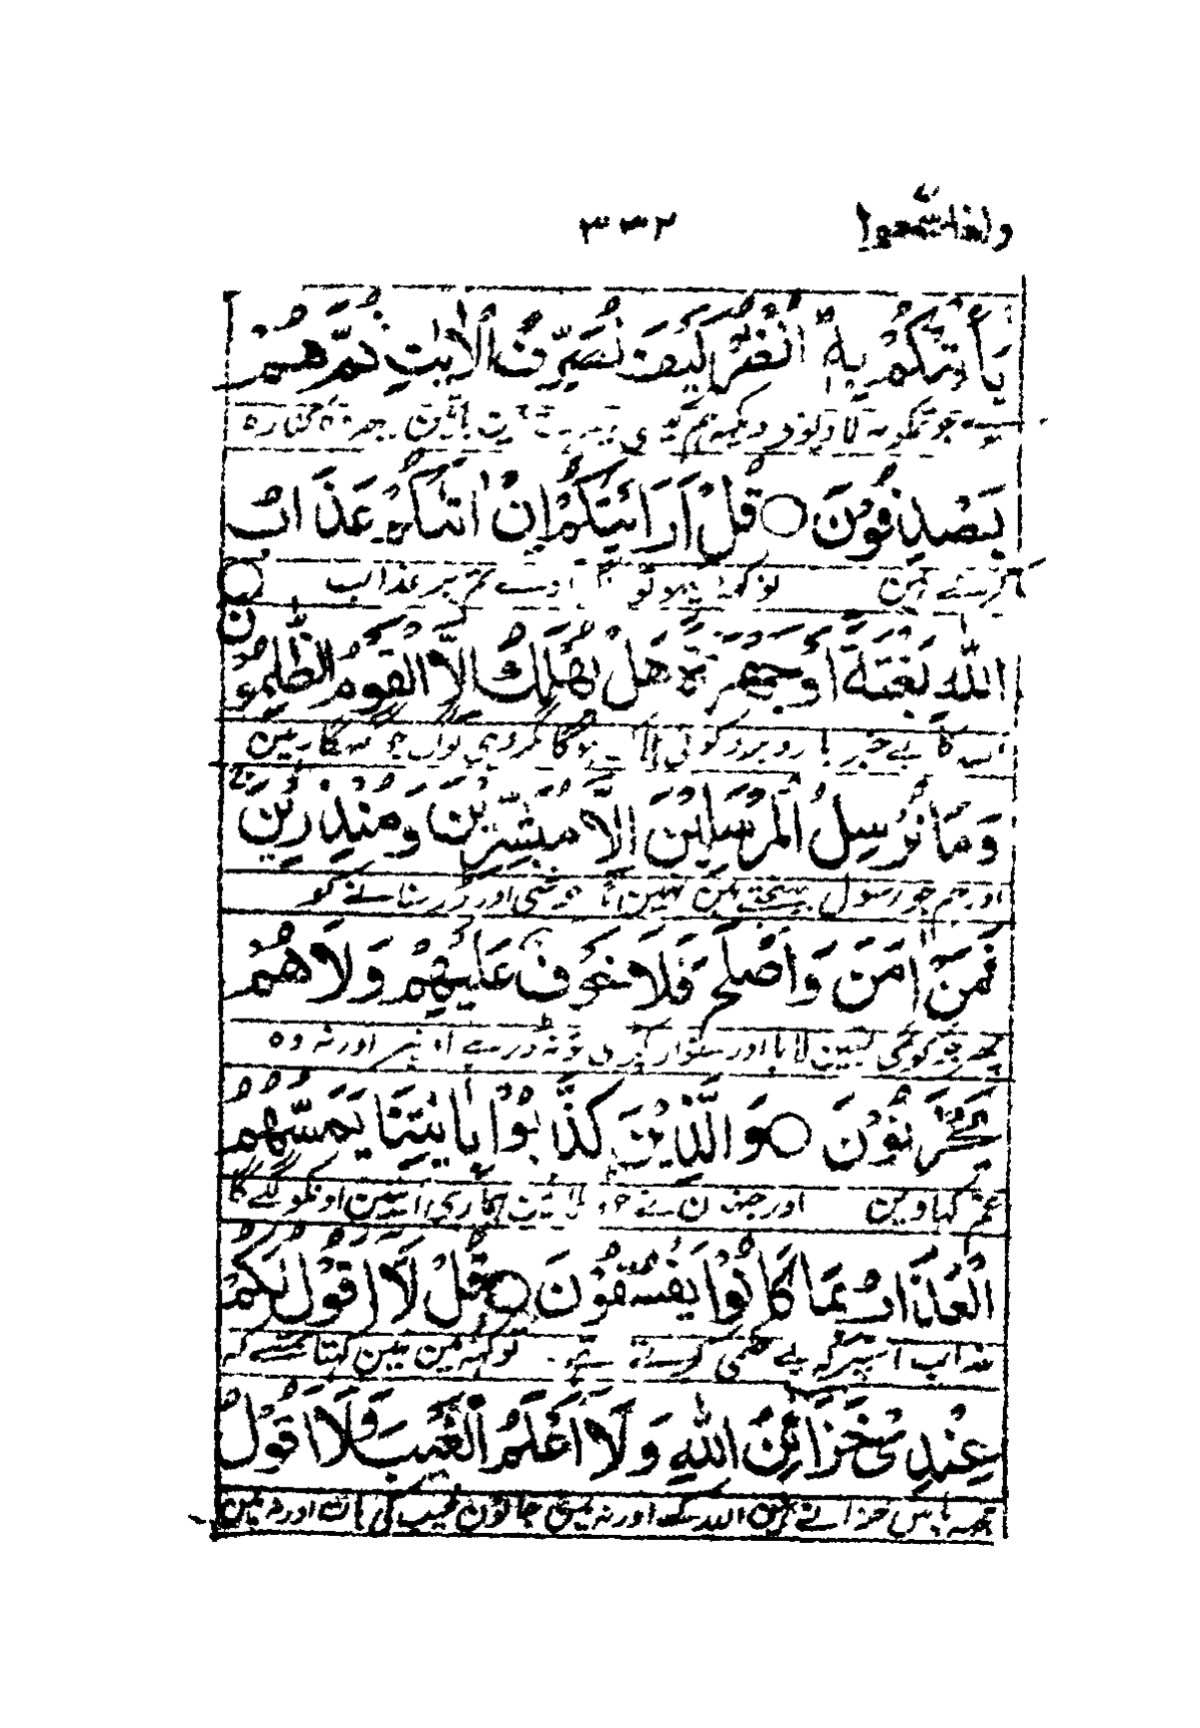 واذا سمعوا ٣٣٢
يَأْتِيْكُمْ بِهٖ اُنْظُرْ كَيْفَ نُصَرِّفُ الْاٰيٰتِ ثُمَّ هُمْ
جو تمکو یہ لا دیوے دیکھہ ہم باتین پھر وہ کنارہ
يَصْدِفُوْنَ ○ قُلْ اَرَاَيْتَكُمْ اِنْ اَتٰىكُمْ عَذَابُ
کرتے ہین تو کہہ دیکھو تو اوے تم پر عذاب
اللّٰهِ بَغْتَةً اَوْ جَهْرَةً هَلْ يُهْلَكُ اِلَّا الْقَوْمُ الظّٰلِمُوْنَ ○
اس کا بے خبر یا روبرو کوئی ہلاک ہوگا مگر وہی لوگ جو گنہگار ہین
وَمَا نُرْسِلُ الْمُرْسَلِيْنَ اِلَّا مُبَشِّرِيْنَ وَمُنْذِرِيْنَ
اور ہم جو رسول بھیجتے ہین نہین مگر خوشی اور ڈر سنانے کو
فَمَنْ اٰمَنَ وَاَصْلَحَ فَلَا خَوْفٌ عَلَيْهِمْ وَلَا هُمْ
پھر جو کوئی یقین لایا اور سنوار پکڑی تو نہ ڈر ہے اونپر اور نہ وہ
يَحْزَنُوْنَ ○ وَالَّذِيْنَ كَذَّبُوْا بِاٰيٰتِنَا يَمَسُّهُمُ
غم کہاوین اور جنہون نے جھٹلائین ہماری آیتین اونکو لگے گا
الْعَذَابُ بِمَا كَانُوْا يَفْسُقُوْنَ ○ قُلْ لَّا اَقُوْلُ لَكُمْ
عذاب اسپر کہ بے حکمی کرتے تھے تو کہہ مین نہین کہتا تمسے کہ
عِنْدِيْ خَزَآئِنُ اللّٰهِ وَلَا اَعْلَمُ الْغَيْبَ وَلَا اَقُوْلُ
مجھہ پاس خزانے ہین اللہ کے اور نہ مین جانون غیب کی بات اور نہ مین